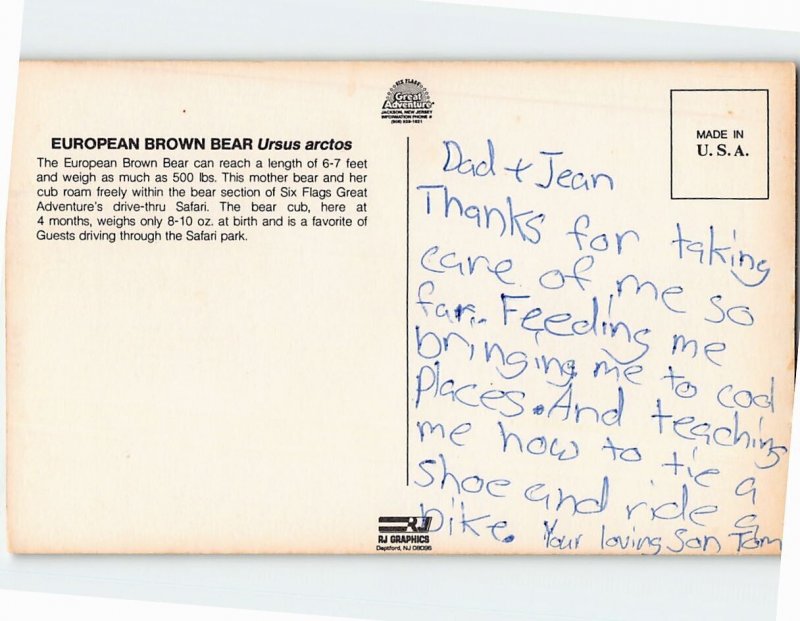 SIX FLAGS
Great
Adventure
JACKSON, NEW JERSEY
INFORMATION PHONE #
(908) 928-1821
MADE IN
U.S.A.
EUROPEAN BROWN BEAR Ursus arctos
The European Brown Bear can reach a length of 6-7 feet
and weigh as much as 500 lbs. This mother bear and her
cub roam freely within the bear section of Six Flags Great
Adventure's drive-thru Safari. The bear cub, here at
4 months, weighs only 8-10 oz. at birth and is a favorite of
Guests driving through the Safari park.
Dad + Jean
Thanks for taking
care of me so
far.. Feeding me
bringing me to cool
places. And teaching
me how to tie a
shoe and ride a
bike. Your loving son Tom
RJ
RJ GRAPHICS
Deptford, NJ 08096